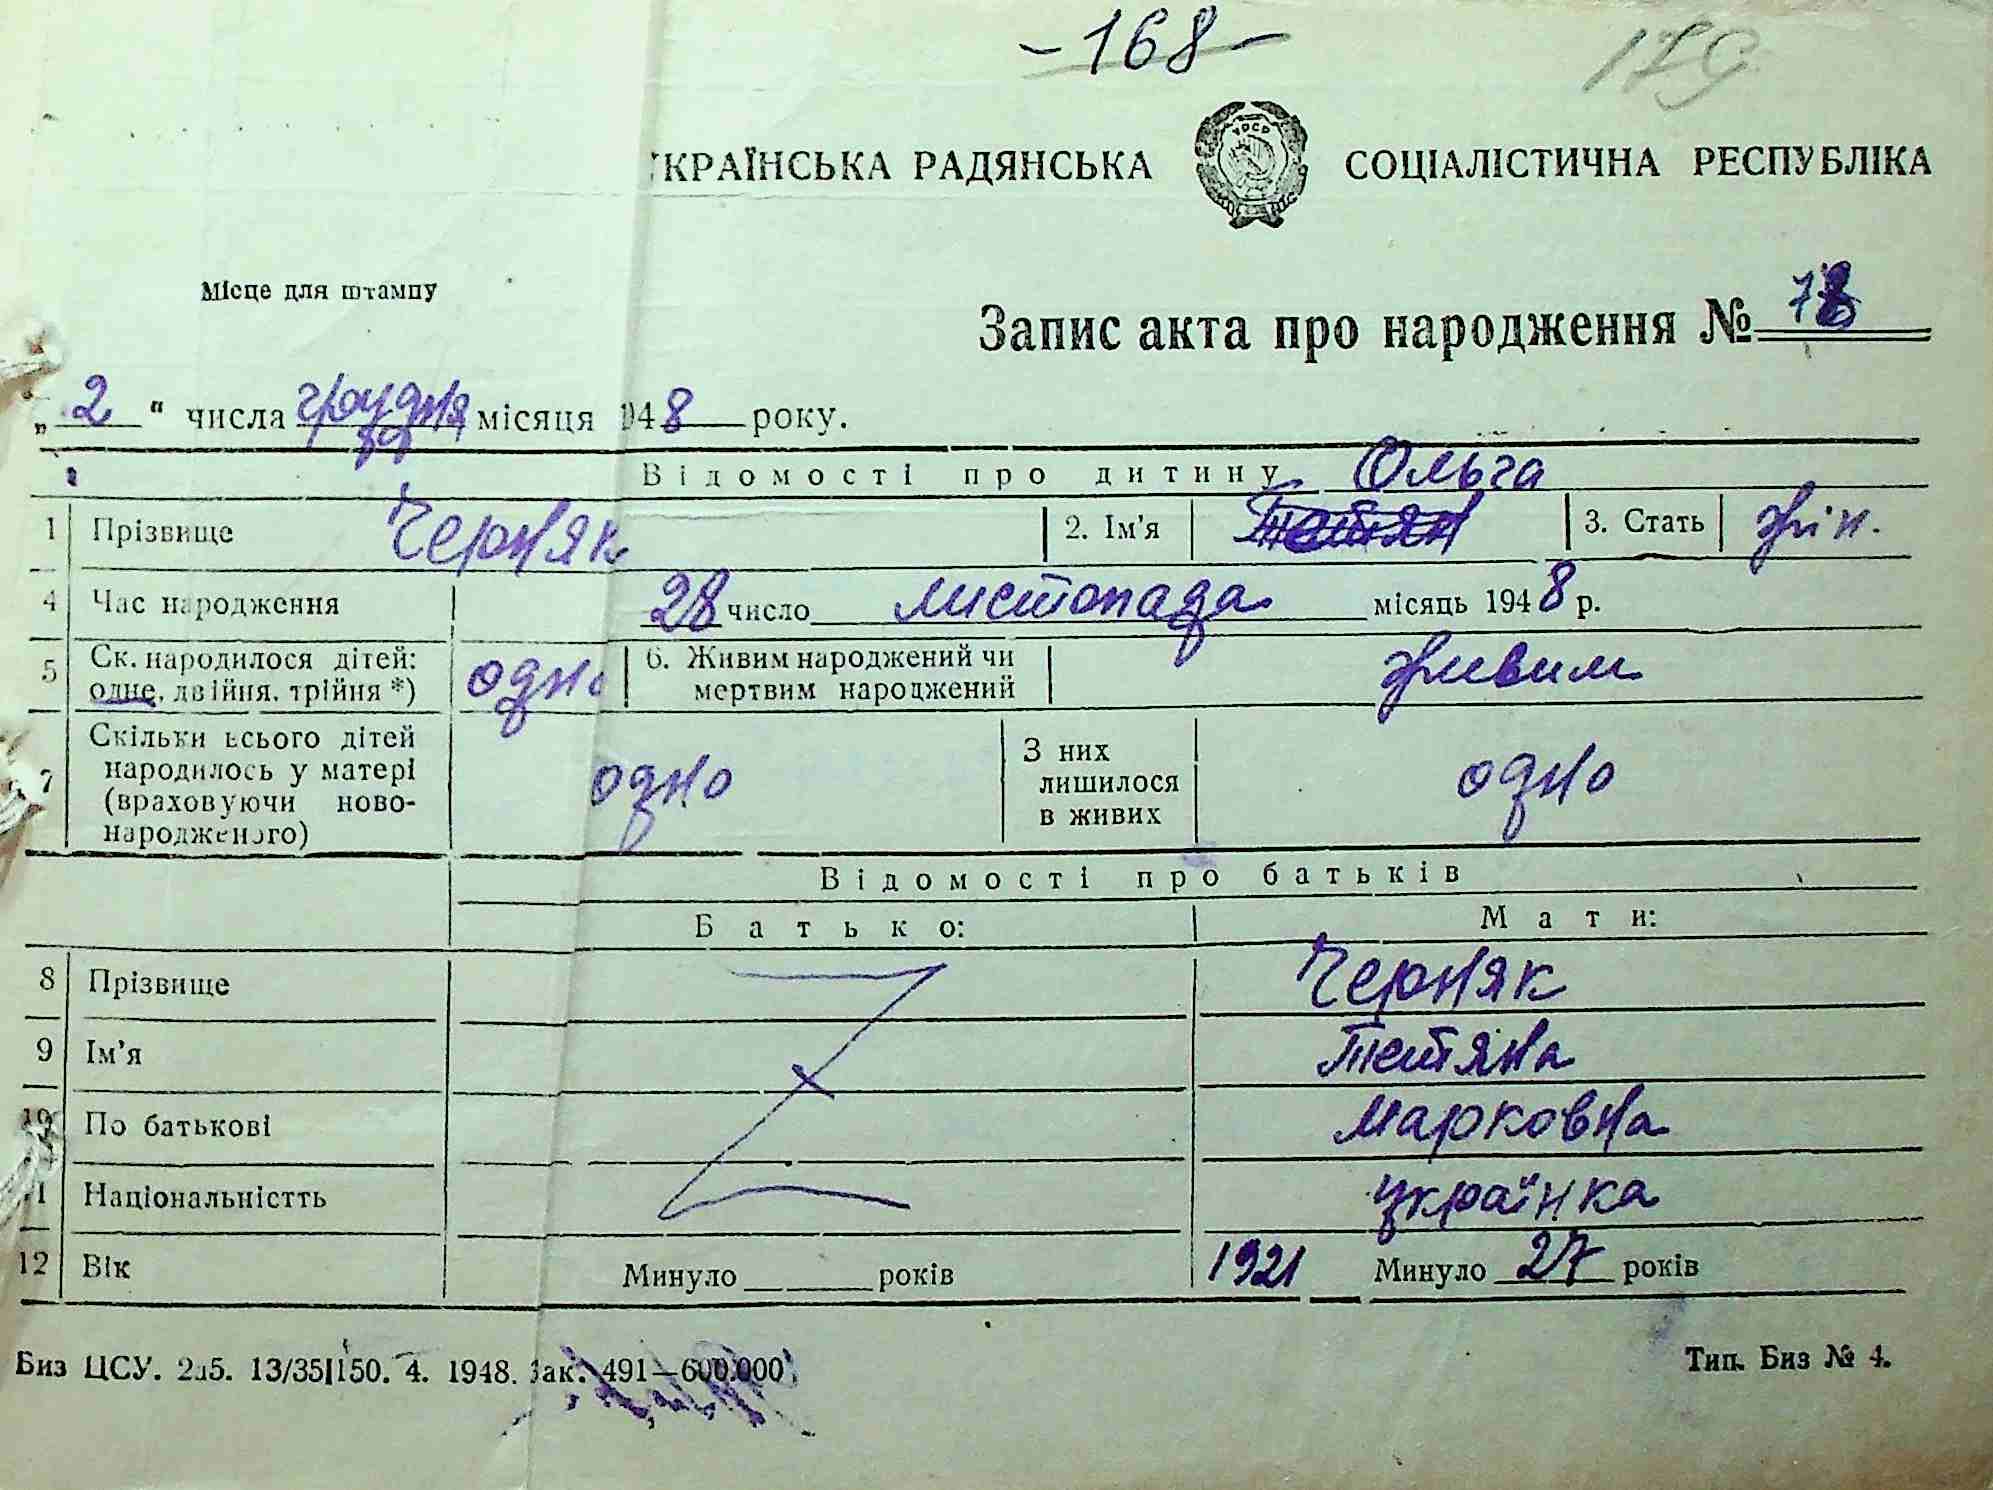 -168-
179
УКРАЇНСЬКА РАДЯНСЬКА СОЦІАЛІСТИЧНА РЕСПУБЛІКА
УРСР
Місце для штампу
Запис акта про народження №
„2" числа грудня місяця 1948 року.
Відомості про дитину Ольга
1 Прізвище Черняк 2. Ім'я Тетян 3. Стать жін.
4 Час народження 28 число листопада місяць 1948 р.
5 Ск. народилося дітей: одне, двійня, трійня *) одно 6. Живим народжений чи мертвим народжений живим
7 Скільки всього дітей народилось у матері (враховуючи ново-народженого) одно З них лишилося в живих одно
Відомості про батьків
Батько: Мати:
8 Прізвище Черняк
9 Ім'я Тетяна
10 По батькові Марковна
11 Національністть українка
12 Вік Минуло ____ років 1921 Минуло 27 років
Биз ЦСУ. 2д5. 13/35|150. 4. 1948. Зак. 491—600.000 Тип. Биз № 4.